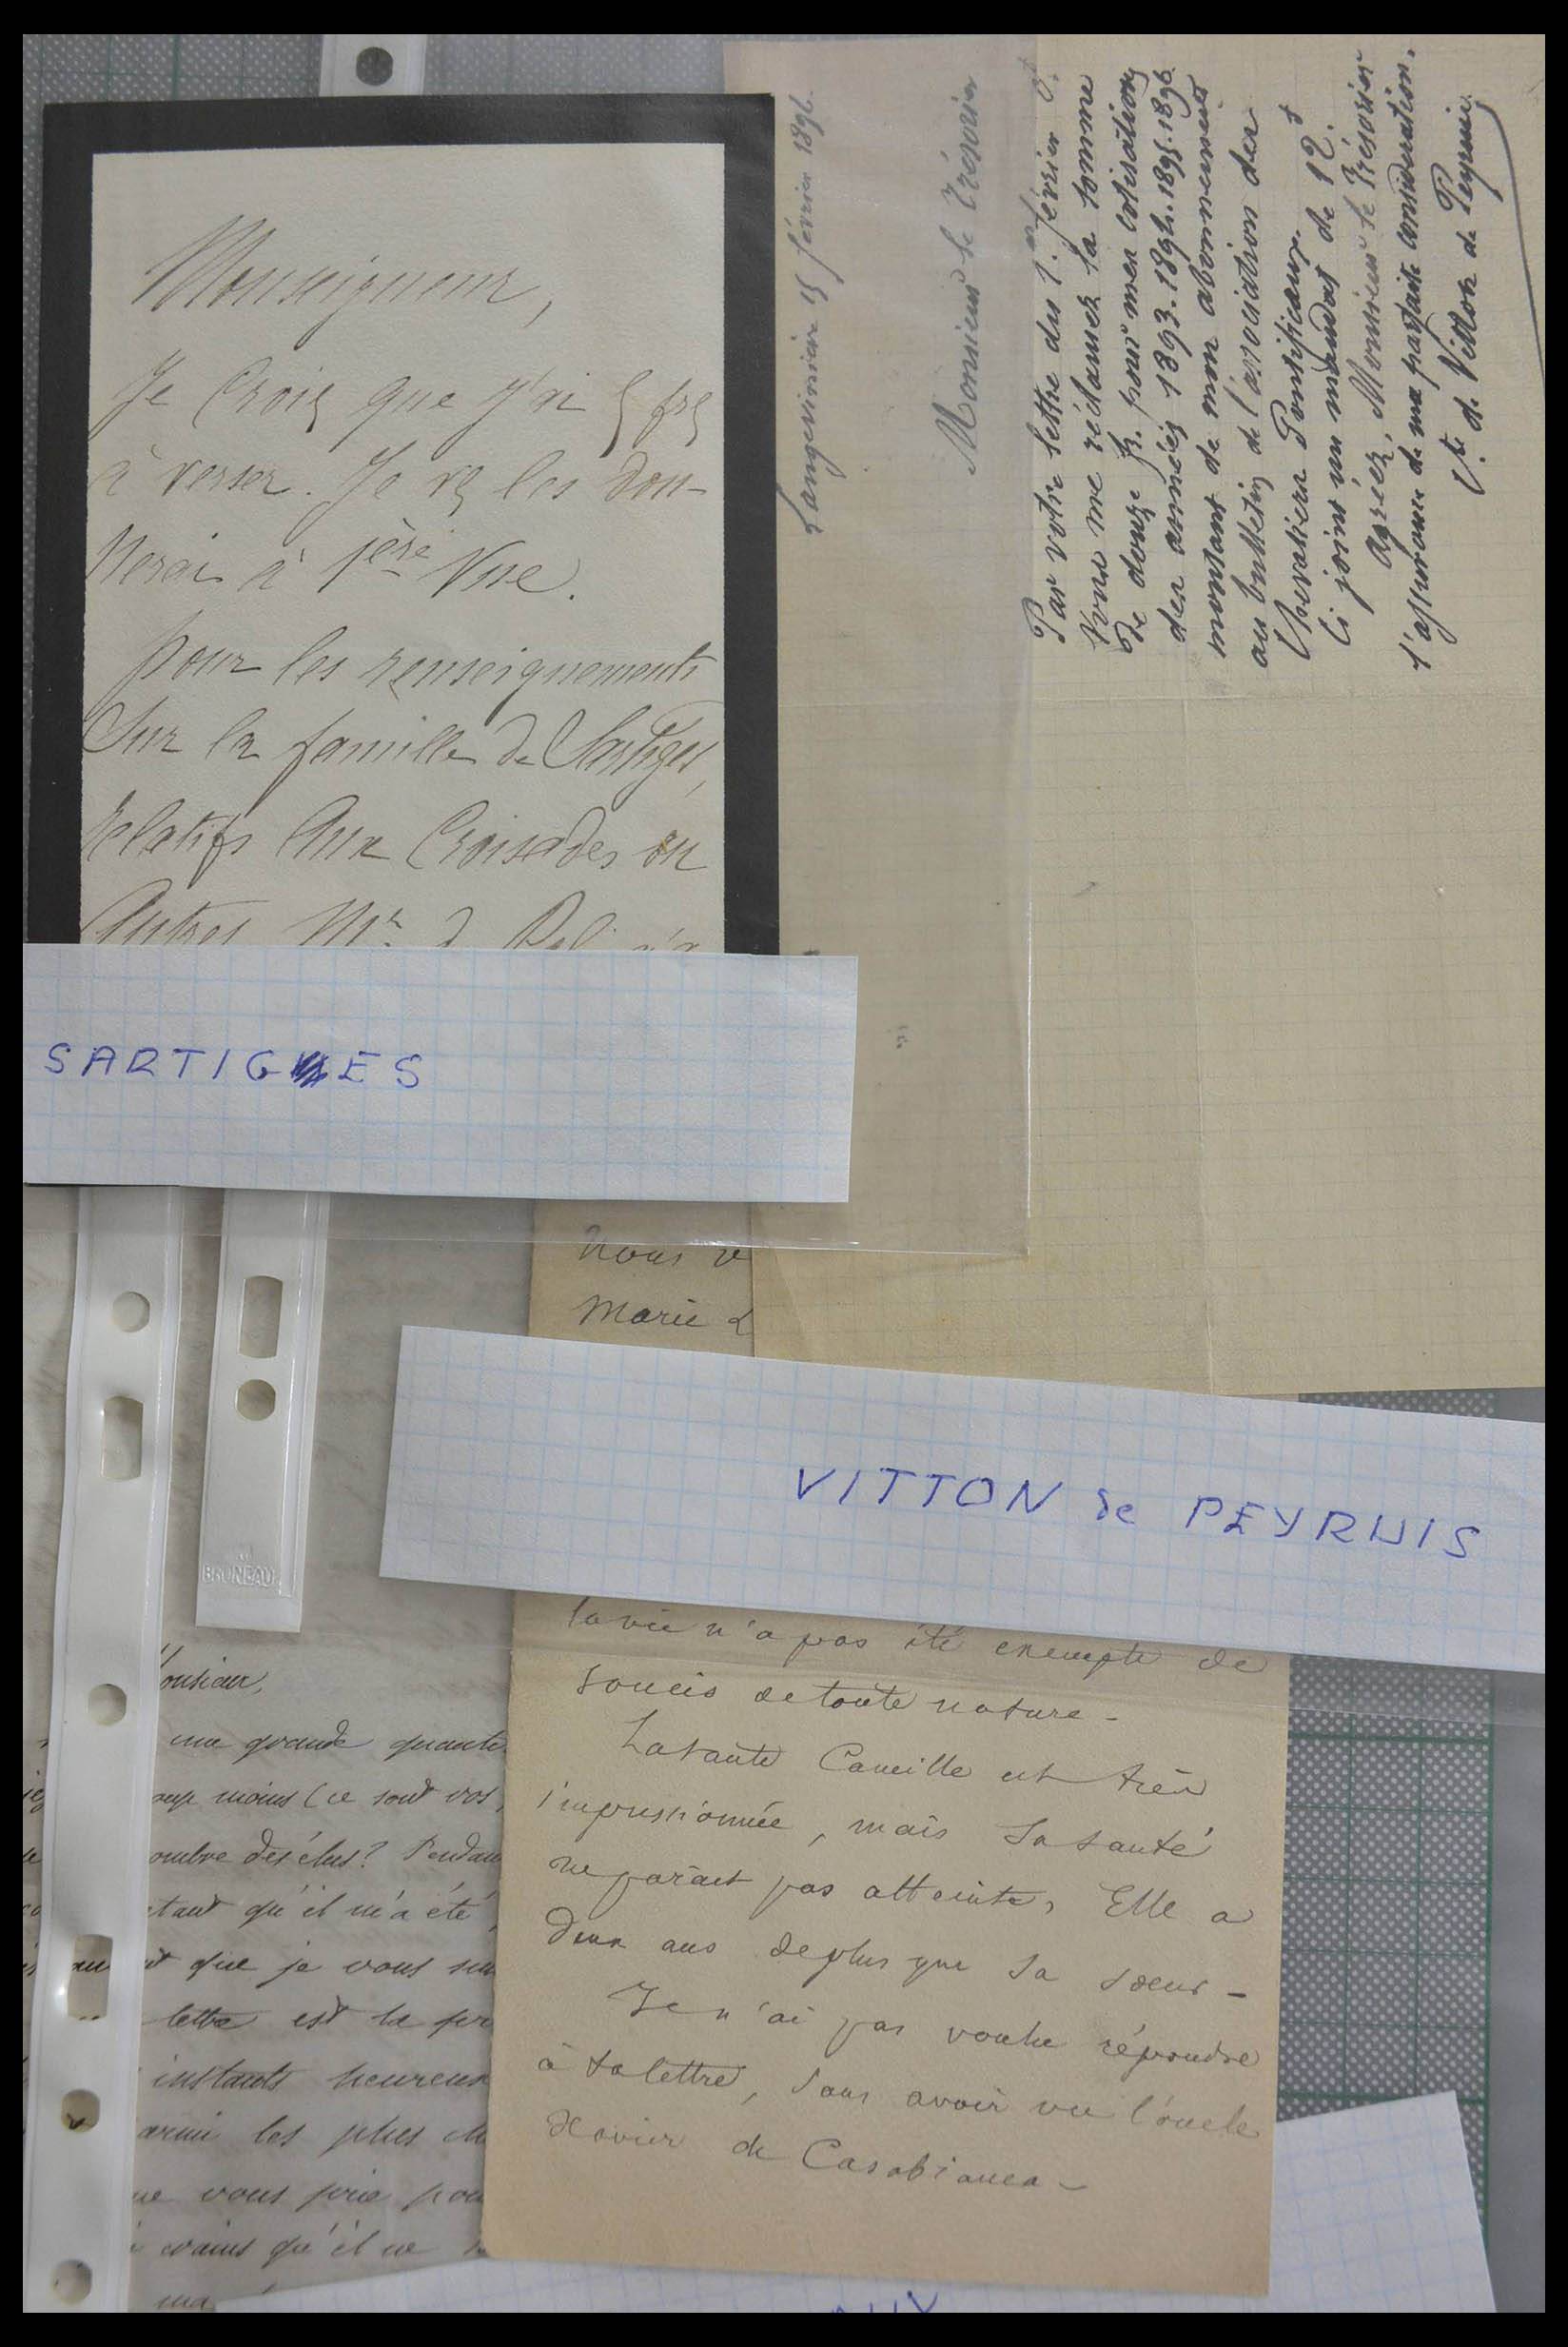 Monseigneur,
Je Crois que j'ai 5 frs
à verser. Je vs les don-
nerai à 1ère Vue.
pour les renseignements
Sur la famille de Sartiges,
relatifs Aux Croisades ou
Autres Mr
SARTIGES
Langevinière 15 février 1896.
Monsieur le Trésorier
Par votre lettre du 1er février ct.
Vous me réclamez la somme
de douze fr. pour mes cotisations
des années 1893. 1894. 1895. 1896
montant de mon abonnement
au bulletin de l'association des
Chevaliers Pontificaux.
Ci joint un mandat de 12 f
Agréez, Monsieur le Trésorier
l'assurance de ma parfaite considération.
Vte de Vitton de Peyruis
nous v
Marie L
VITTON de PEYRUIS
la vie n'a pas été exempte de
soucis de toute nature -
La tante Camille est très
impressionnée, mais sa santé
ne paraît pas atteinte, Elle a
deux ans de plus que sa soeur -
Je n'ai pas voulu répondre
à ta lettre, sans avoir vu l'oncle
Xavier de Casabianca -
BRUNEAU
onsieur,
une grande quanti
oup moins (ce sont vos
ombre des élus? Pendan
tant qu'il m'a été
que je vous
lettre est la
instants heureux
armi les plus
vous prie pou
crains qu'il ne
ma